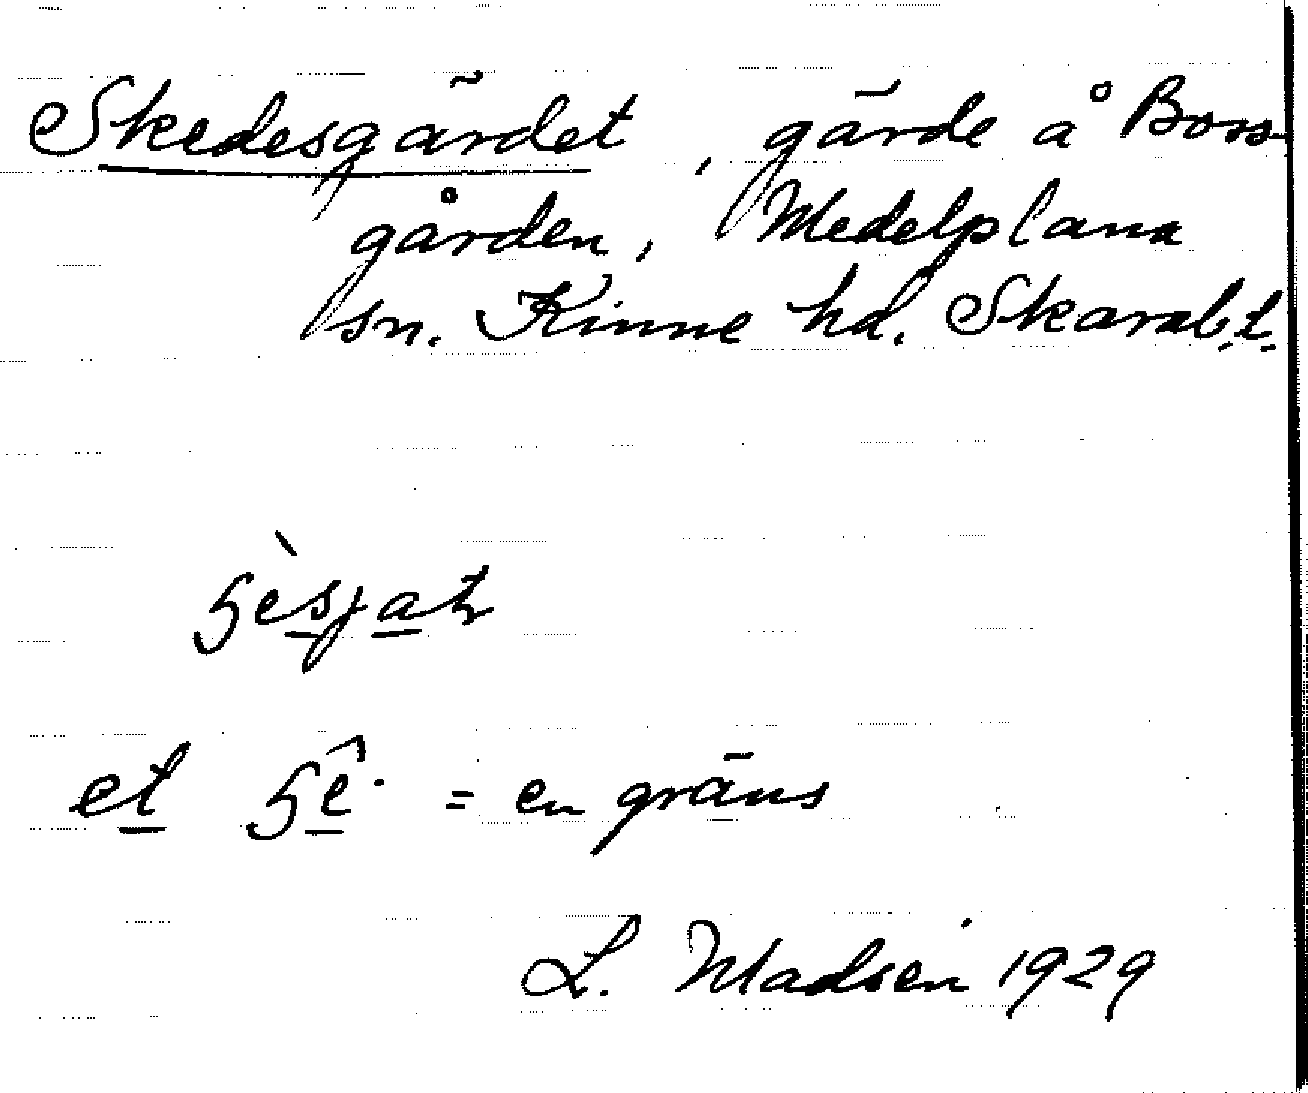 Skedesgärdet, gärde å Boss-
gården, Medelplana
sn. Kinne hd. Skarab.l.
et = en gräns
L. Madsén 1929